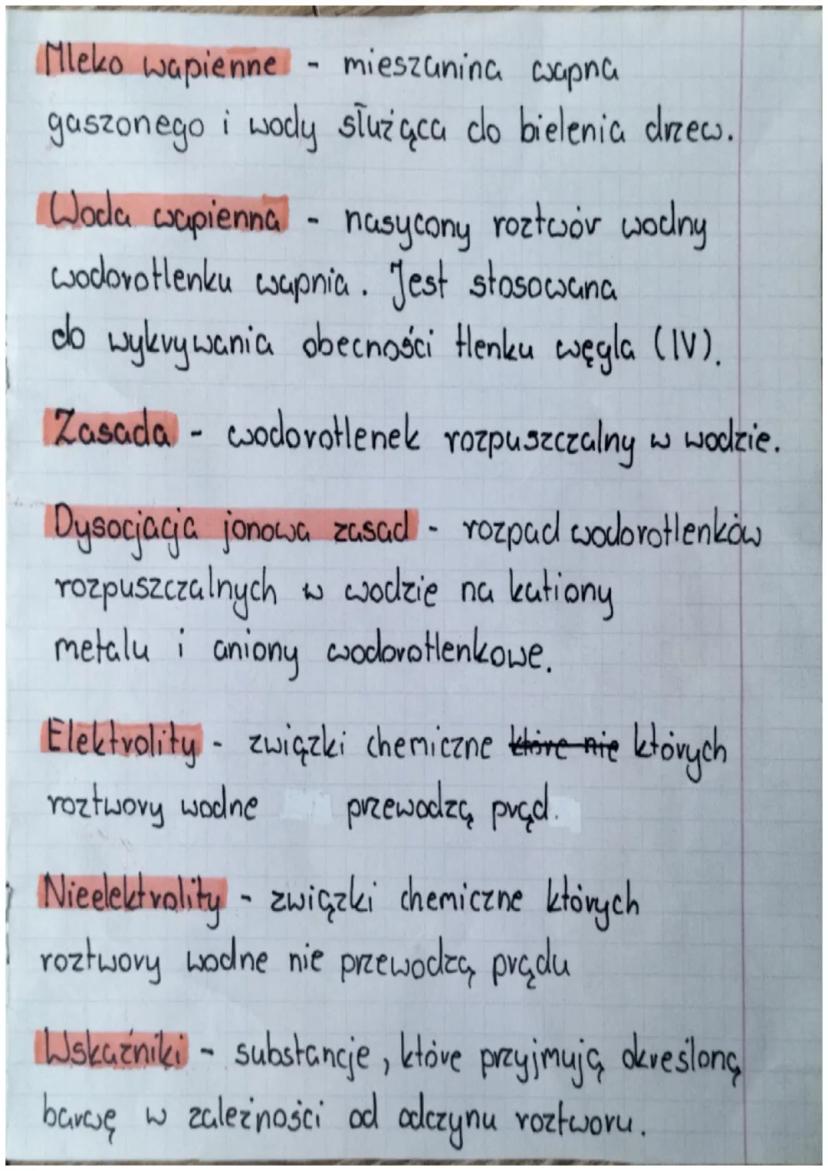 Mleko wapienne - mieszanina wapna
gaszonego i wody służąca do bielenia drzew.
Woda wapienna - nasycony roztwór wodny
wodorotlenku wapnia. Jest stosowana
do wykrywania obecności tlenku węgla (IV).
Zasada - wodorotlenek rozpuszczalny w wodzie.
Dysocjacja jonowa zasad - rozpad wodorotlenków
rozpuszczalnych w wodzie na kationy
metalu i aniony wodorotlenkowe.
Elektrolity - związki chemiczne które nie których
roztwory wodne przewodzą prąd.
Nieelektrolity - związki chemiczne których
roztwory wodne nie przewodzą prądu
Wskaźniki - substancje, które przyjmują określoną
barwę w zależności od odczynu roztworu.